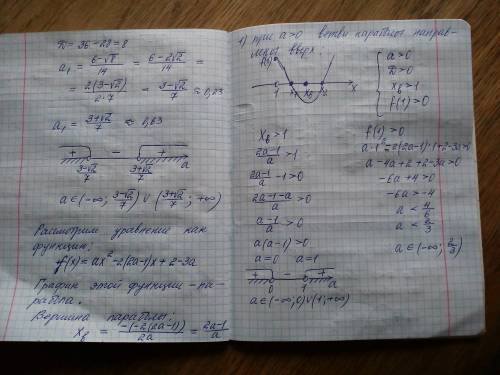 D = 36 - 28 = 8
a₁ = (6-√8)/14 = (6-2√2)/14 =
= 2(3-√2)/(2·7) = (3-√2)/7 ≈ 0,23
a₁ = (3+√2)/7 ≈ 0,63
+ - +
(3-√2)/7 (3+√2)/7 a
a ∈ (-∞; (3-√2)/7) ∪ ((3+√2)/7; +∞)
Рассмотрим уравнение как
функцию.
f(x) = ax² - 2(2a-1)x + 2-3a
График этой функции - па-
рабола.
Вершина параболы:
x_в = -(-2(2a-1))/2a = (2a-1)/a
1) при a>0 ветви параболы направ-
лены вверх:
f(1)
1 x₁ x_в x₂ x
a>0
D>0
x_в>1
f(1)>0
x_в > 1
(2a-1)/a > 1
(2a-1)/a - 1 > 0
(2a-1-a)/a > 0
(a-1)/a > 0
a(a-1) > 0
a=0 a=1
+ - +
0 1 a
a ∈ (-∞; 0) ∪ (1; +∞)
f(1) > 0
a·1² - 2(2a-1)·1 + 2-3a > 0
a - 4a + 2 + 2 - 3a > 0
-6a + 4 > 0
-6a > -4
a < 4/6
a < 2/3
a ∈ (-∞; 2/3)